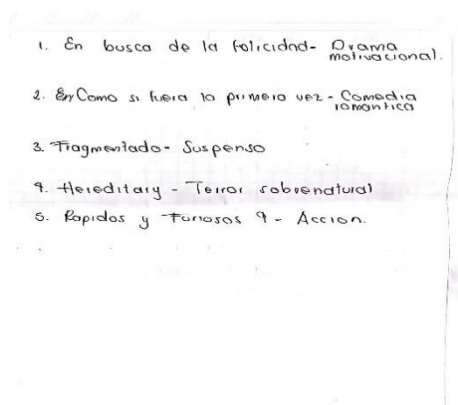 1. En busca de la folicidad- Drama
motivacional.
2. Como si fuera la primera vez - Comedia
romantica
3. Fragmentado- Suspenso
4. Hereditary - Terror sobrenatural
5. Rapidos y Furiosos 9 - Accion.